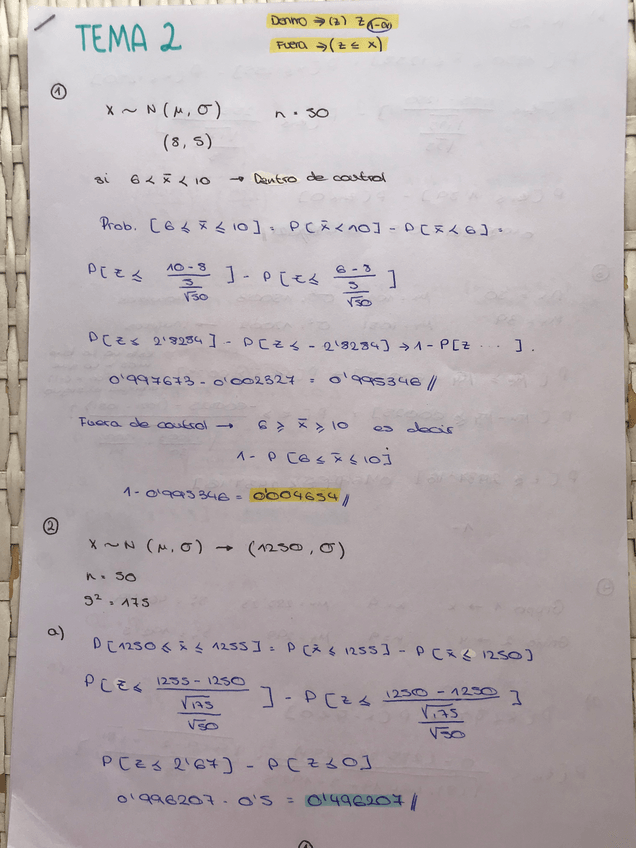 Dentro ⇒ (z) z(1-α)
TEMA 2
Fuera ⇒ (z ≤ x)
①
X ~ N (μ, σ) n = 50
(8, 5)
si 6 < x̄ < 10 → Dentro de control
Prob. [6 ≤ x̄ ≤ 10] = P[x̄ < 10] - P[x̄ < 6] =
P[z ≤ (10-8)/(5/√50)] - P[z ≤ (6-8)/(5/√50)]
P[z ≤ 2'8284] - P[z ≤ -2'8284] → 1 - P[z ... ].
0'997673 - 0'002327 = 0'995346 //
Fuera de control → 6 ≥ x̄ ≥ 10 es decir
1 - P [6 ≤ x̄ ≤ 10]
1 - 0'995346 = 0'004654 //
②
X ~ N (μ, σ) → (1250, σ)
n = 50
s² = 175
a) P[1250 ≤ x̄ ≤ 1255] = P[x̄ ≤ 1255] - P[x̄ ≤ 1250]
P[z ≤ (1255 - 1250)/(√175/√50)] - P[z ≤ (1250 - 1250)/(√175/√50)]
P[z ≤ 2'67] - P[z ≤ 0]
0'996207 - 0'5 = 0'496207 //